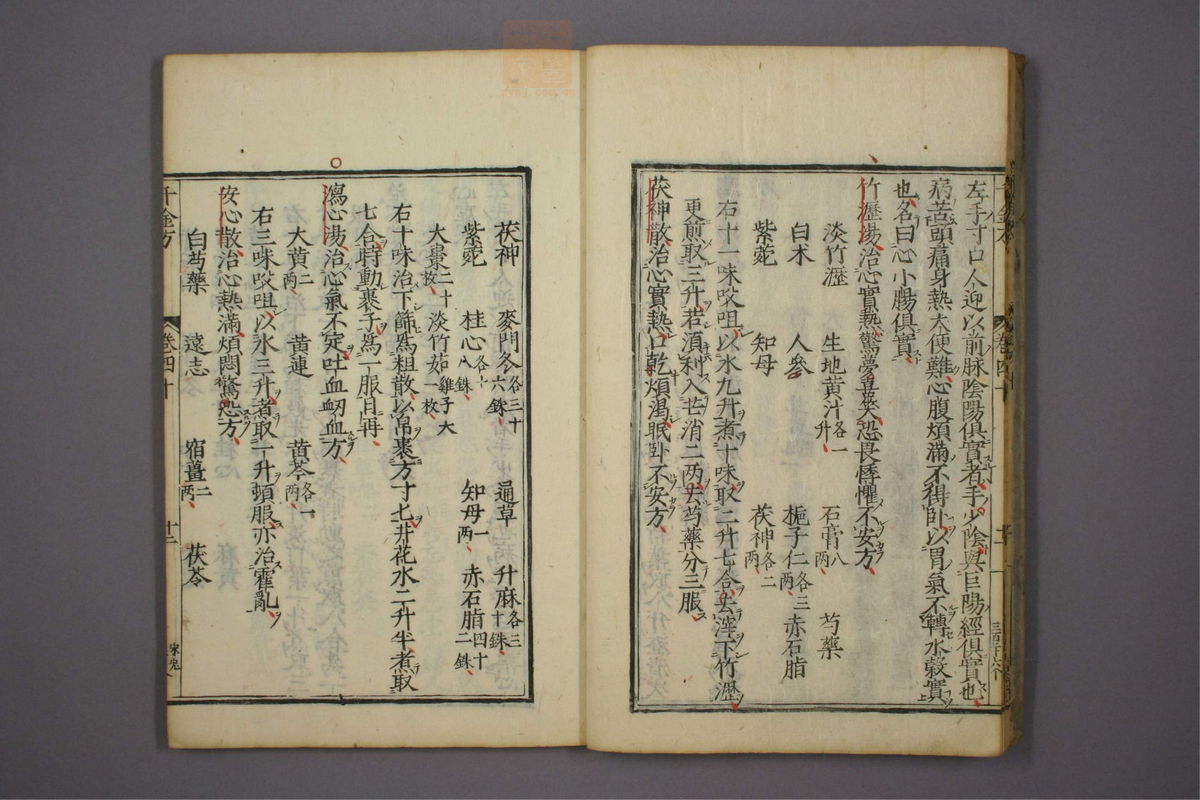 左手寸口人迎以前脉陰陽俱實者手少陰與巨陽經俱實也
病苦頭痛身熱大便難心腹煩滿不得卧以胃氣不轉水穀實
也名曰心小腸俱實
竹瀝湯治心實熱驚夢喜笑恐畏悸懼不安方
淡竹瀝 生地黄汁各一升 石膏八兩 芍藥
白术 知母 梔子仁各三兩 赤石脂
紫菀 人參 茯神各二兩
右十一味㕮咀以水九升煮十味取二升七合去滓下竹瀝
更煎取三升若須利入芒消二两去芍藥分三服
茯神散治心實熱口乾煩渴眠卧不安方
茯神 麥門冬各三十六銖 通草 升麻各三十銖
紫菀 桂心各十八銖 知母一两 赤石脂四十二銖
大棗二十枚 淡竹茹雞子大一枚
右十味治下篩爲粗散以帛裹方寸匕井花水二升半煮取
七合時動裹子爲一服日再
瀉心湯治心氣不定吐血衂血方
大黄二两 黄連 黄芩各一两
右三味㕮咀以水三升煮取一升頓服亦治霍亂
安心散治心熱滿煩悶驚恐方
白芍藥 遠志 宿薑二两 茯苓
千金方 卷四十 十二